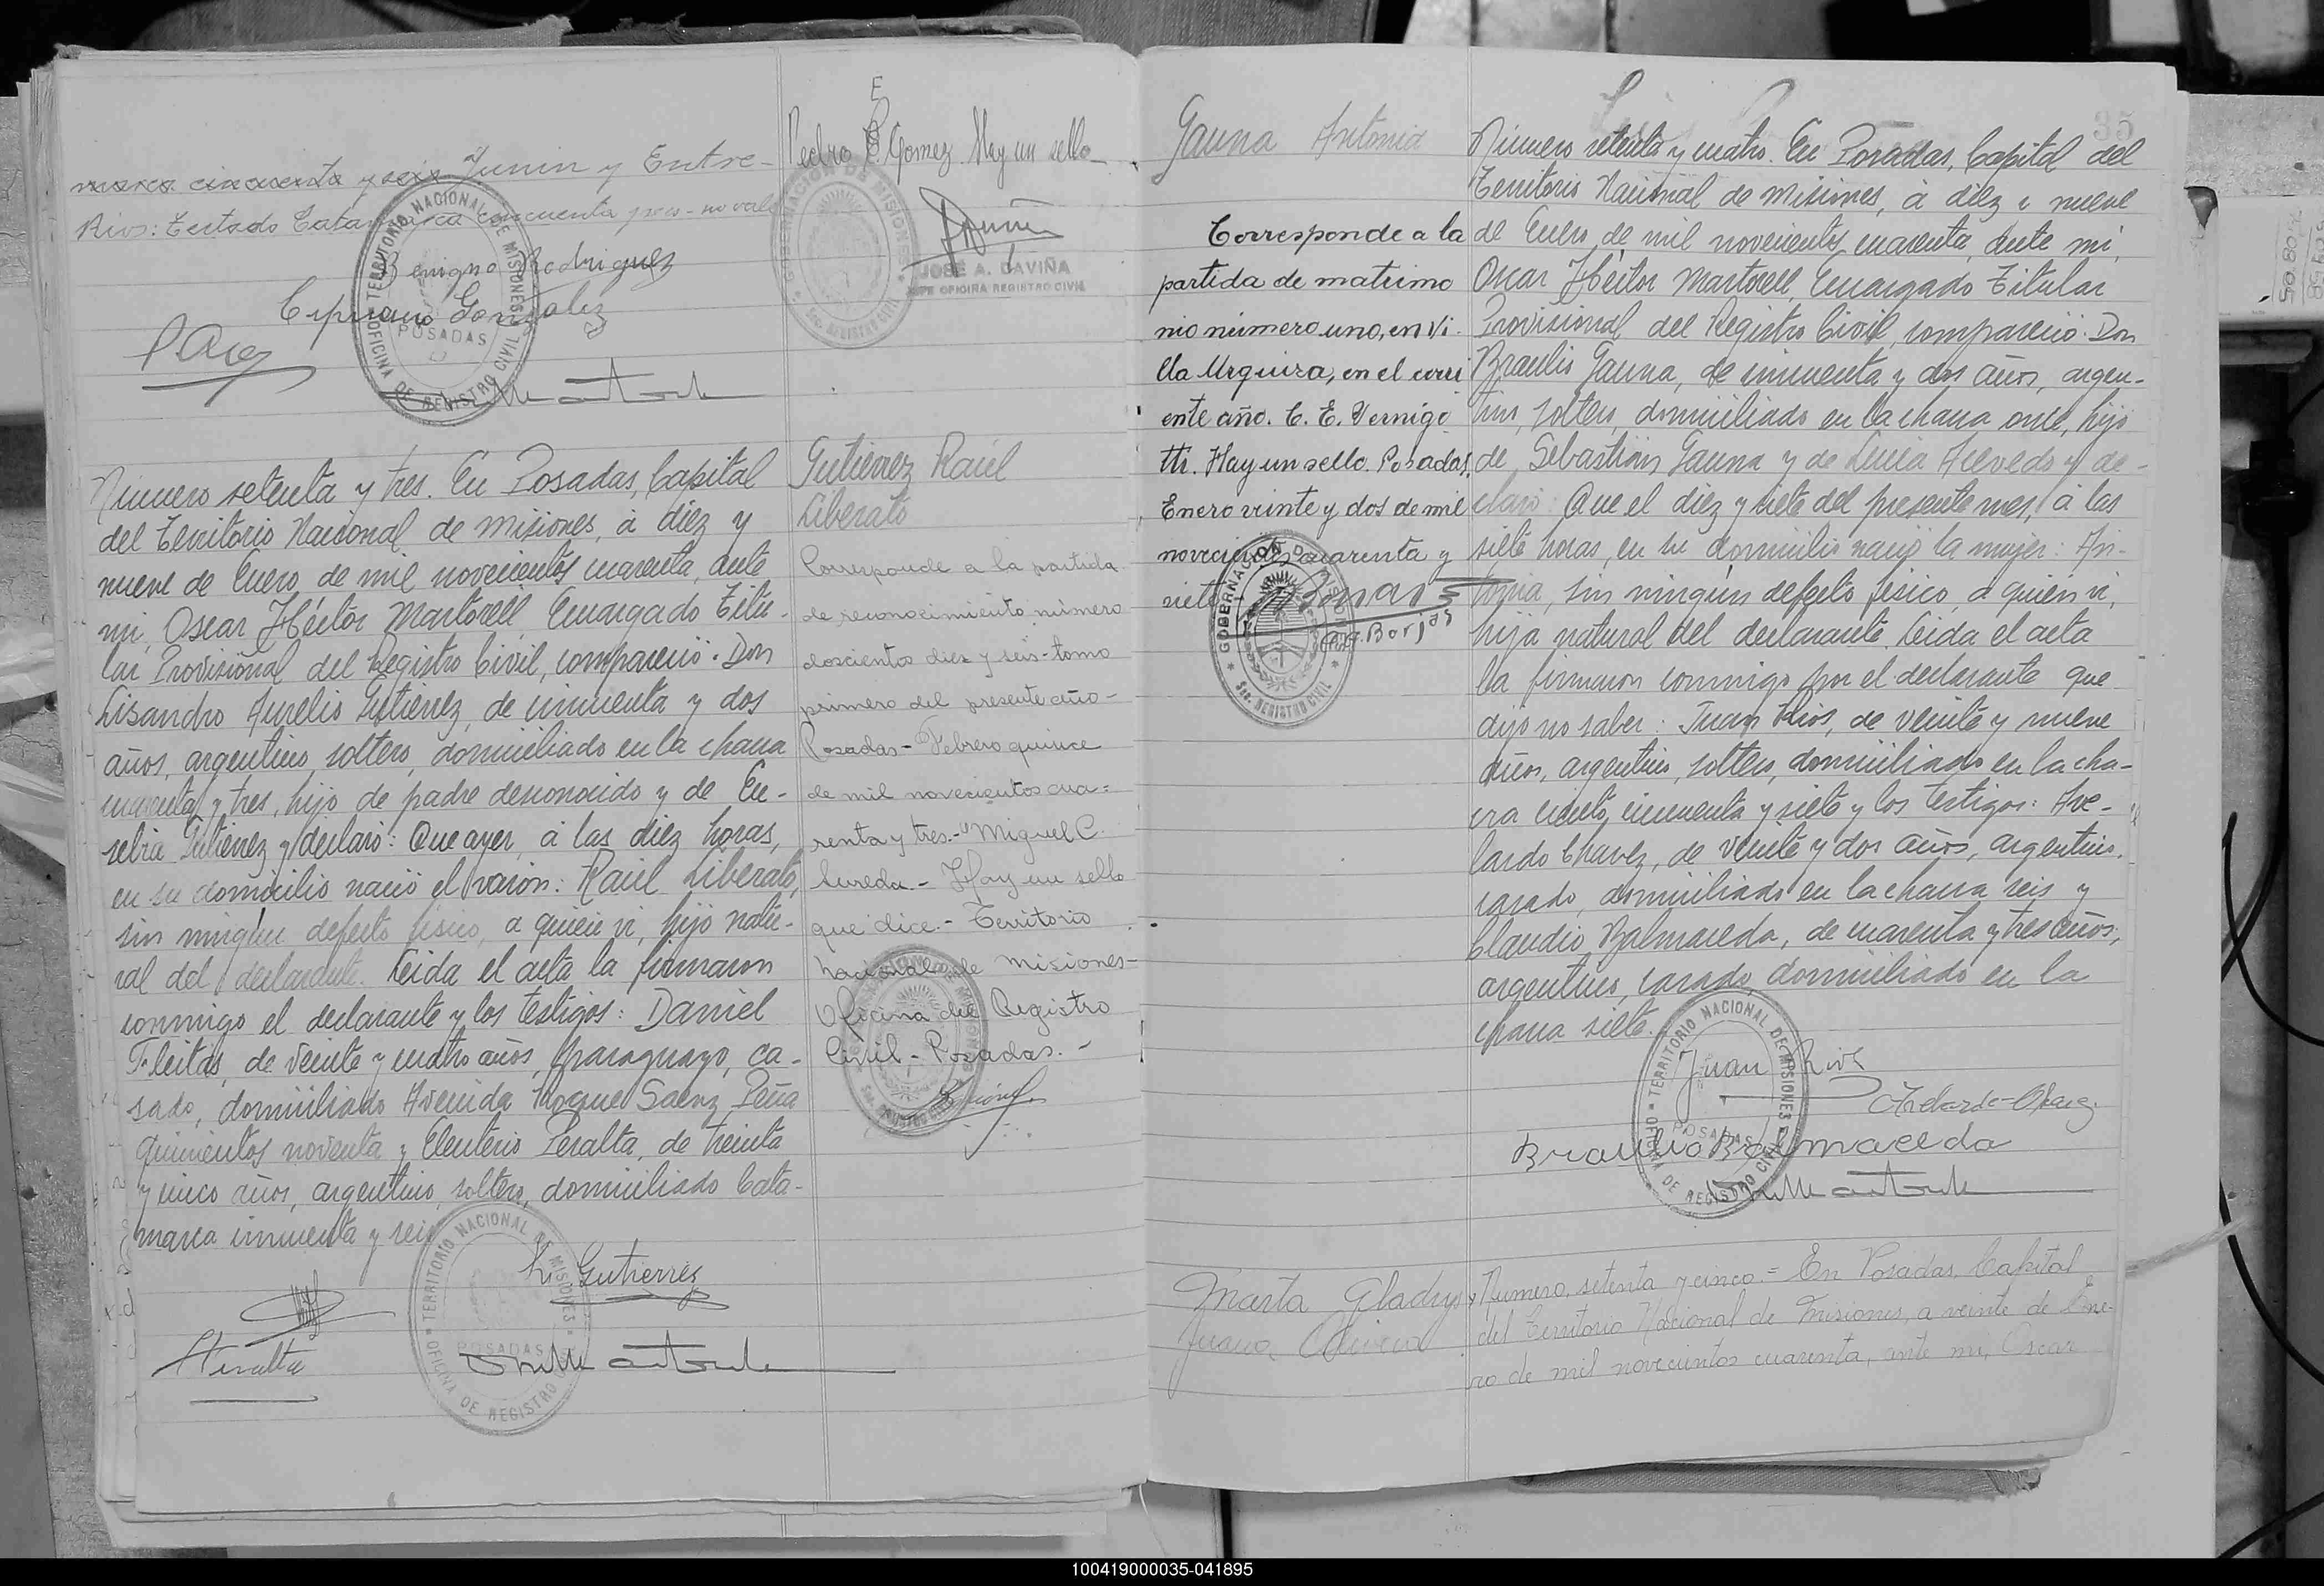 marca cincuenta y seis Junin y Entre-
Rios: Testado Catamarca cincuenta y seis - no vale
Benigno Rodriguez
Cipriano Gonzalez
TERRITORIO NACIONAL DE MISIONES
OFICINA DE REGISTRO CIVIL
POSADAS
Número setenta y tres. En Posadas, Capital
del Territorio Nacional de Misiones, á diez y
nueve de Enero de mil novecientos cuarenta, ante
mi, Oscar Héctor Martorell Encargado Titu-
lar Provisional del Registro Civil, compareció: Don
Lisandro Aurelio Gutierrez, de cincuenta y dos
años, argentino, soltero, domiciliado en la chacra
cuarenta y tres, hijo de padre desconocido y de Eu-
sebia Gutierrez y declaró: Que ayer, á las diez horas,
en su domicilio nació el varón: Raúl Liberato,
sin ningún defecto físico, a quien vi, hijo natu-
ral del declarante. Leida el acta la firmaron
conmigo el declarante y los testigos: Daniel
Fleitas, de veinte y cuatro años, paraguayo, ca-
sado, domiciliado Avenida Roque Saenz Peña
quinientos noventa y Eleuterio Peralta, de treinta
y cinco años, argentino, soltero, domiciliado Cata-
marca cincuenta y seis
L. Gutierrez
EPeralta
TERRITORIO NACIONAL DE MISIONES
OFICINA DE REGISTRO
POSADAS
E
Pedro E. Gomez. Hay un sello
GOBERNACION DE MISIONES
Sec. REGISTRO CIVIL
JOSE A. DAVIÑA
JEFE OFICINA REGISTRO CIVIL
Gutierrez Raúl
Liberato
Corresponde a la partida
de reconocimiento número
doscientos diez y seis - tomo
primero del presente año -
Posadas - Febrero quince
de mil novecientos cua-
renta y tres.- Miguel C.
Sureda - Hay un sello
que dice - Territorio
Nacional de Misiones -
Oficina del Registro
Civil - Posadas. -
Sec. REGISTRO CIVIL
Gauna Antonia
Corresponde a la
partida de matrimo
nio número uno, en Vi-
lla Urquiza, en el corri
ente año. C. E. Vernigo
tti. Hay un sello. Posadas,
Enero veinte y dos de mil
novecientos cuarenta y
siete
Borjas
GOBERNACION DE MISIONES
Sec. REGISTRO CIVIL
35
Número setenta y cuatro. En Posadas, Capital del
Territorio Nacional de Misiones, á diez y nueve
de Enero de mil novecientos cuarenta, ante mi,
Oscar Héctor Martorell, Encargado Titular
Provisional del Registro Civil, compareció: Don
Braulio Gauna, de cincuenta y dos años, argen-
tino, soltero, domiciliado en la chacra once, hijo
de Sebastián Gauna y de Lucía Acevedo y de-
claró: Que el diez y siete del presente mes, á las
siete horas, en su domicilio nació la mujer: An-
tonia, sin ningún defecto físico a quien vi,
hija natural del declarante. Leida el acta
la firmaron conmigo por el declarante que
dijo no saber: Juan Rios, de veinte y nueve
años, argentino, soltero, domiciliado en la cha-
cra ciento cincuenta y siete y los testigos: Abe-
lardo Chavez, de veinte y dos años, argentino,
casado, domiciliado en la chacra seis y
Claudio Balmaceda, de cuarenta y tres años,
argentino, casado, domiciliado en la
chacra siete.
Juan Rios
Abelardo Chavez
Braulio Balmaceda
TERRITORIO NACIONAL DE MISIONES
OFICINA DE REGISTRO CIVIL
POSADAS
Marta Gladys
Juana
Numero, setenta y cinco.= En Posadas, Capital
del Territorio Nacional de Misiones, a veinte de Ene-
ro de mil novecientos cuarenta, ante mi, Oscar
100419000035-041895